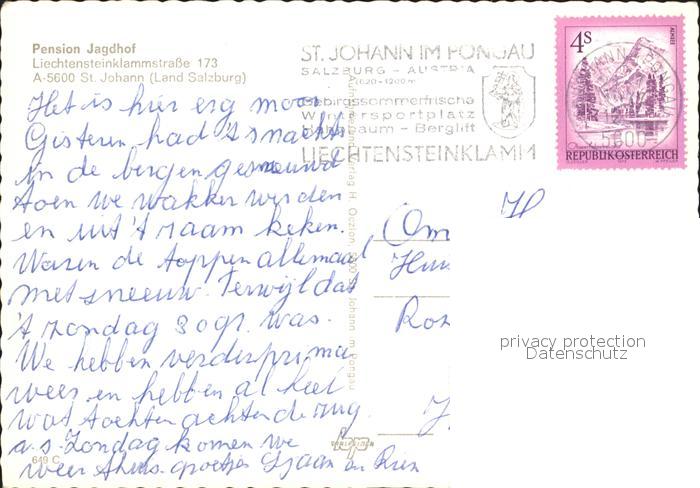 Pension Jagdhof
Liechtensteinklammstraße 173
A-5600 St. Johann (Land Salzburg)
ST. JOHANN IM PONGAU
SALZBURG - AUSTRIA
620-1200 m
Gebirgssommerfrische
Wintersportplatz
- Berglift
LIECHTENSTEINKLAMM
4S
REPUBLIK ÖSTERREICH
5600
Het is hier erg mooi
Gisteren had 't snachts
in de bergen gesneeuwd
toen we wakker werden
en uit 't raam keken.
Waren de toppen allemaal
met sneeuw. Terwijl dat
't zondag 30 gr. was.
We hebben verder prima
weer en hebben al heel
wat tochten achter de rug.
a.s. Zondag komen we
weer thuis. groetjes Sjaan en Rien
Om
Ro
649 C
privacy protection
Datenschutz